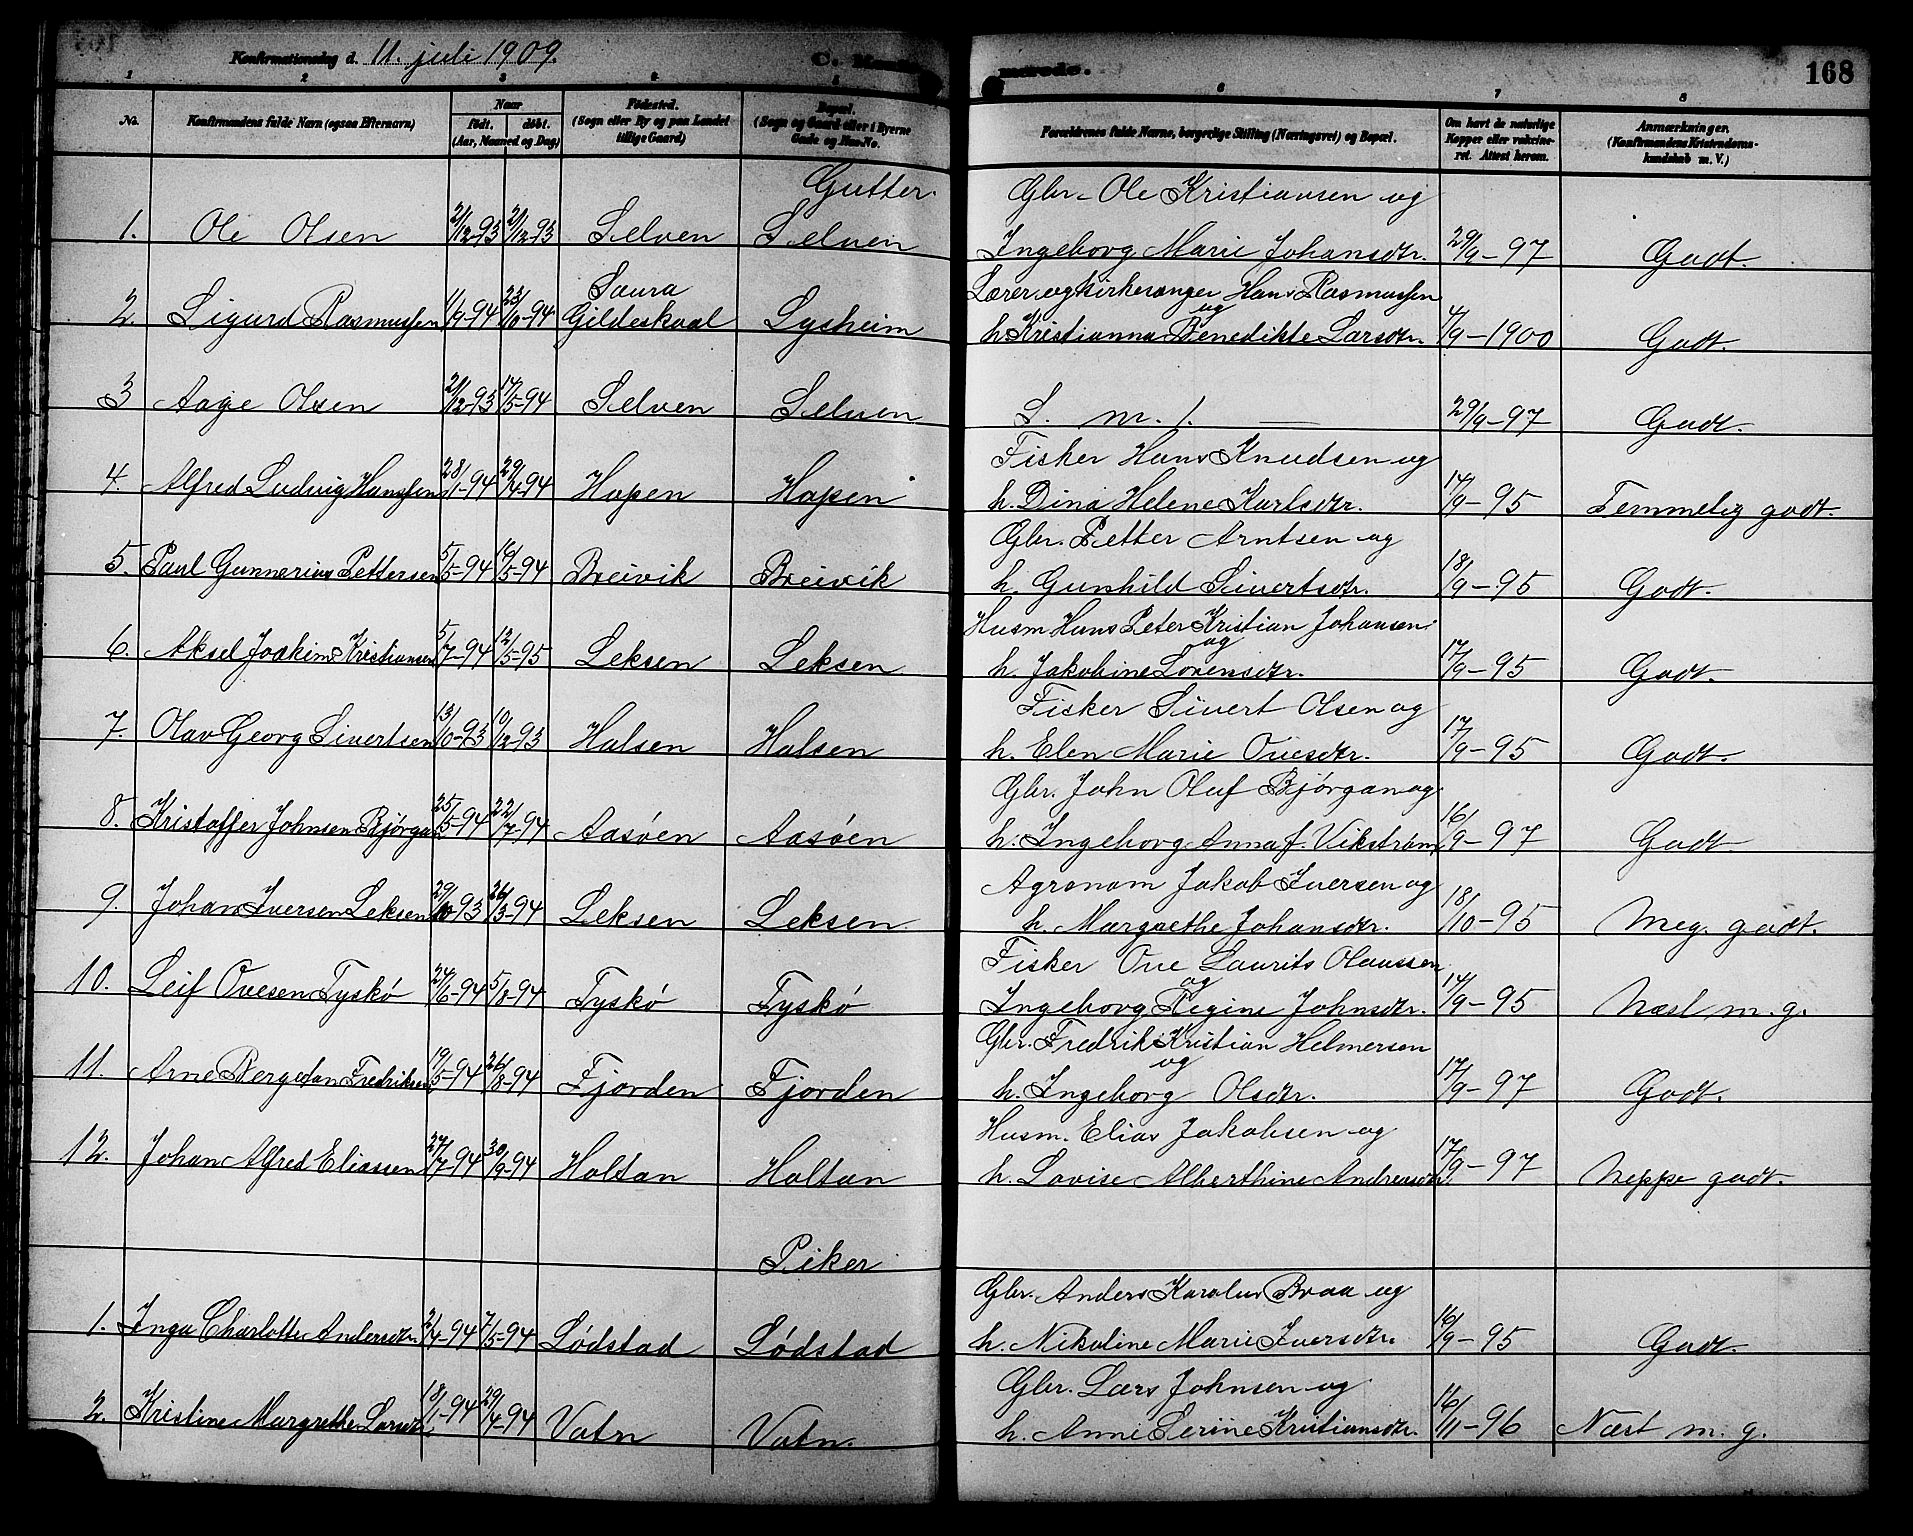 Konfirmationsdag d. 11. juli 1909.
168
1 2 3 4 5 6 7 8
No.
Konfirmandens fulde Navn (ogsaa Efternavn)
Naar
født. døbt.
(Aar, Maaned og Dag)
Fødested.
(Sogn eller By og paa Landet
tillige Gaard)
Bopæl.
(Sogn og Gaard eller i Byerne
Gade og Hus-No.
Forældrenes fulde Navne, borgerlige Stilling (Næringsvei) og Bopæl.
Om havt de naturlige
Kopper eller vakcine-
ret. Attest herom.
Anmærkninger.
(Konfirmandens Kristendoms-
kundskab m. V.)
Gutter.
Gbr. Ole Kristiansen og
1. Ole Olsen 2/12-93 21/12-93 Selven Selven Ingeborg Marie Johansdtr. 29/9-97 Godt.
Saura Lærer og kirkesanger Hans Rasmussen
og
2. Sigurd Rasmussen 11/9-94 23/10-94 Gildeskaal Lysheim h. Kristianna Benedikte Larsdtr. 4/9-1900 Godt.
3 Aage Olsen 21/12-93 17/5-94 Selven Selven S. m. 1. 29/9-97 Godt.
Fisker Hans Knudsen og
4. Alfred Ludvig Hanssen 28/1-94 29/4-94 Hopen Hopen h. Dina Helene Karlsdtr. 14/9-95 Temmelig godt.
Gbr. Petter Arntsen og
5. Paul Gunnerius Pettersen 5/5-94 16/5-94 Breivik Breivik h. Gunhild Sivertsdtr. 18/9-95 Godt.
Husm Hans Peter Kristian Johansen
og
6. Aksel Joakim Kristiansen 5/7-94 12/5-95 Leksen Leksen h. Jakobine Lorensdtr. 17/9-95 Godt.
Fisker Sivert Olsen og
7. Olav Georg Sivertsen 13/10-93 10/12-93 Halsen Halsen h. Elen Marie Ovesdtr. 17/9-95 Godt.
Gbr. John Oluf Bjørgan og
8. Kristoffer Johnsen Bjørgan 25/5-94 22/7-94 Aasøen Aasøen h. Ingeborg Anna f. Vikstrøm 16/9-97 Godt.
Agronom Jakob Iversen og
9. Johan Iversen Leksen 29/10-93 26/3-94 Leksen Leksen h. Margrethe Johansdtr. 18/10-95 Meg. godt.
Fisker Ove Laurits Olaussen
og
10. Leif Ovesen Tyskø 24/6-94 5/8-94 Tyskø Tyskø Ingeborg Regine Johnsdtr. 14/9-95 Næst m. g.
Gbr. Fredrik Kristian Helmersen
og
11. Arne Bergetan Fredriksen 19/5-94 26/8-94 Fjorden Fjorden h. Ingeborg Olsdtr. 17/9-97 Godt.
Husm. Elias Jakobsen og
12. Johan Alfred Eliassen 27/7-94 30/9-94 Holtan Holtan h. Lovise Alberthine Andreasdtr. 17/9-97 Neppe godt.
Piker
Gbr. Anders Karolus Braa og
1. Inga Charlotte Andersdtr. 2/4-94 7/5-94 Lødstad Lødstad h. Nikoline Marie Iversdtr. 16/9-95 Godt.
Gbr. Lars Johnsen og
2. Kristine Margrethe Larsdtr. 18/1-94 29/4-94 Vatn Vatn. h. Anne Serine Kristiansdtr. 16/11-96 Næst m. g.